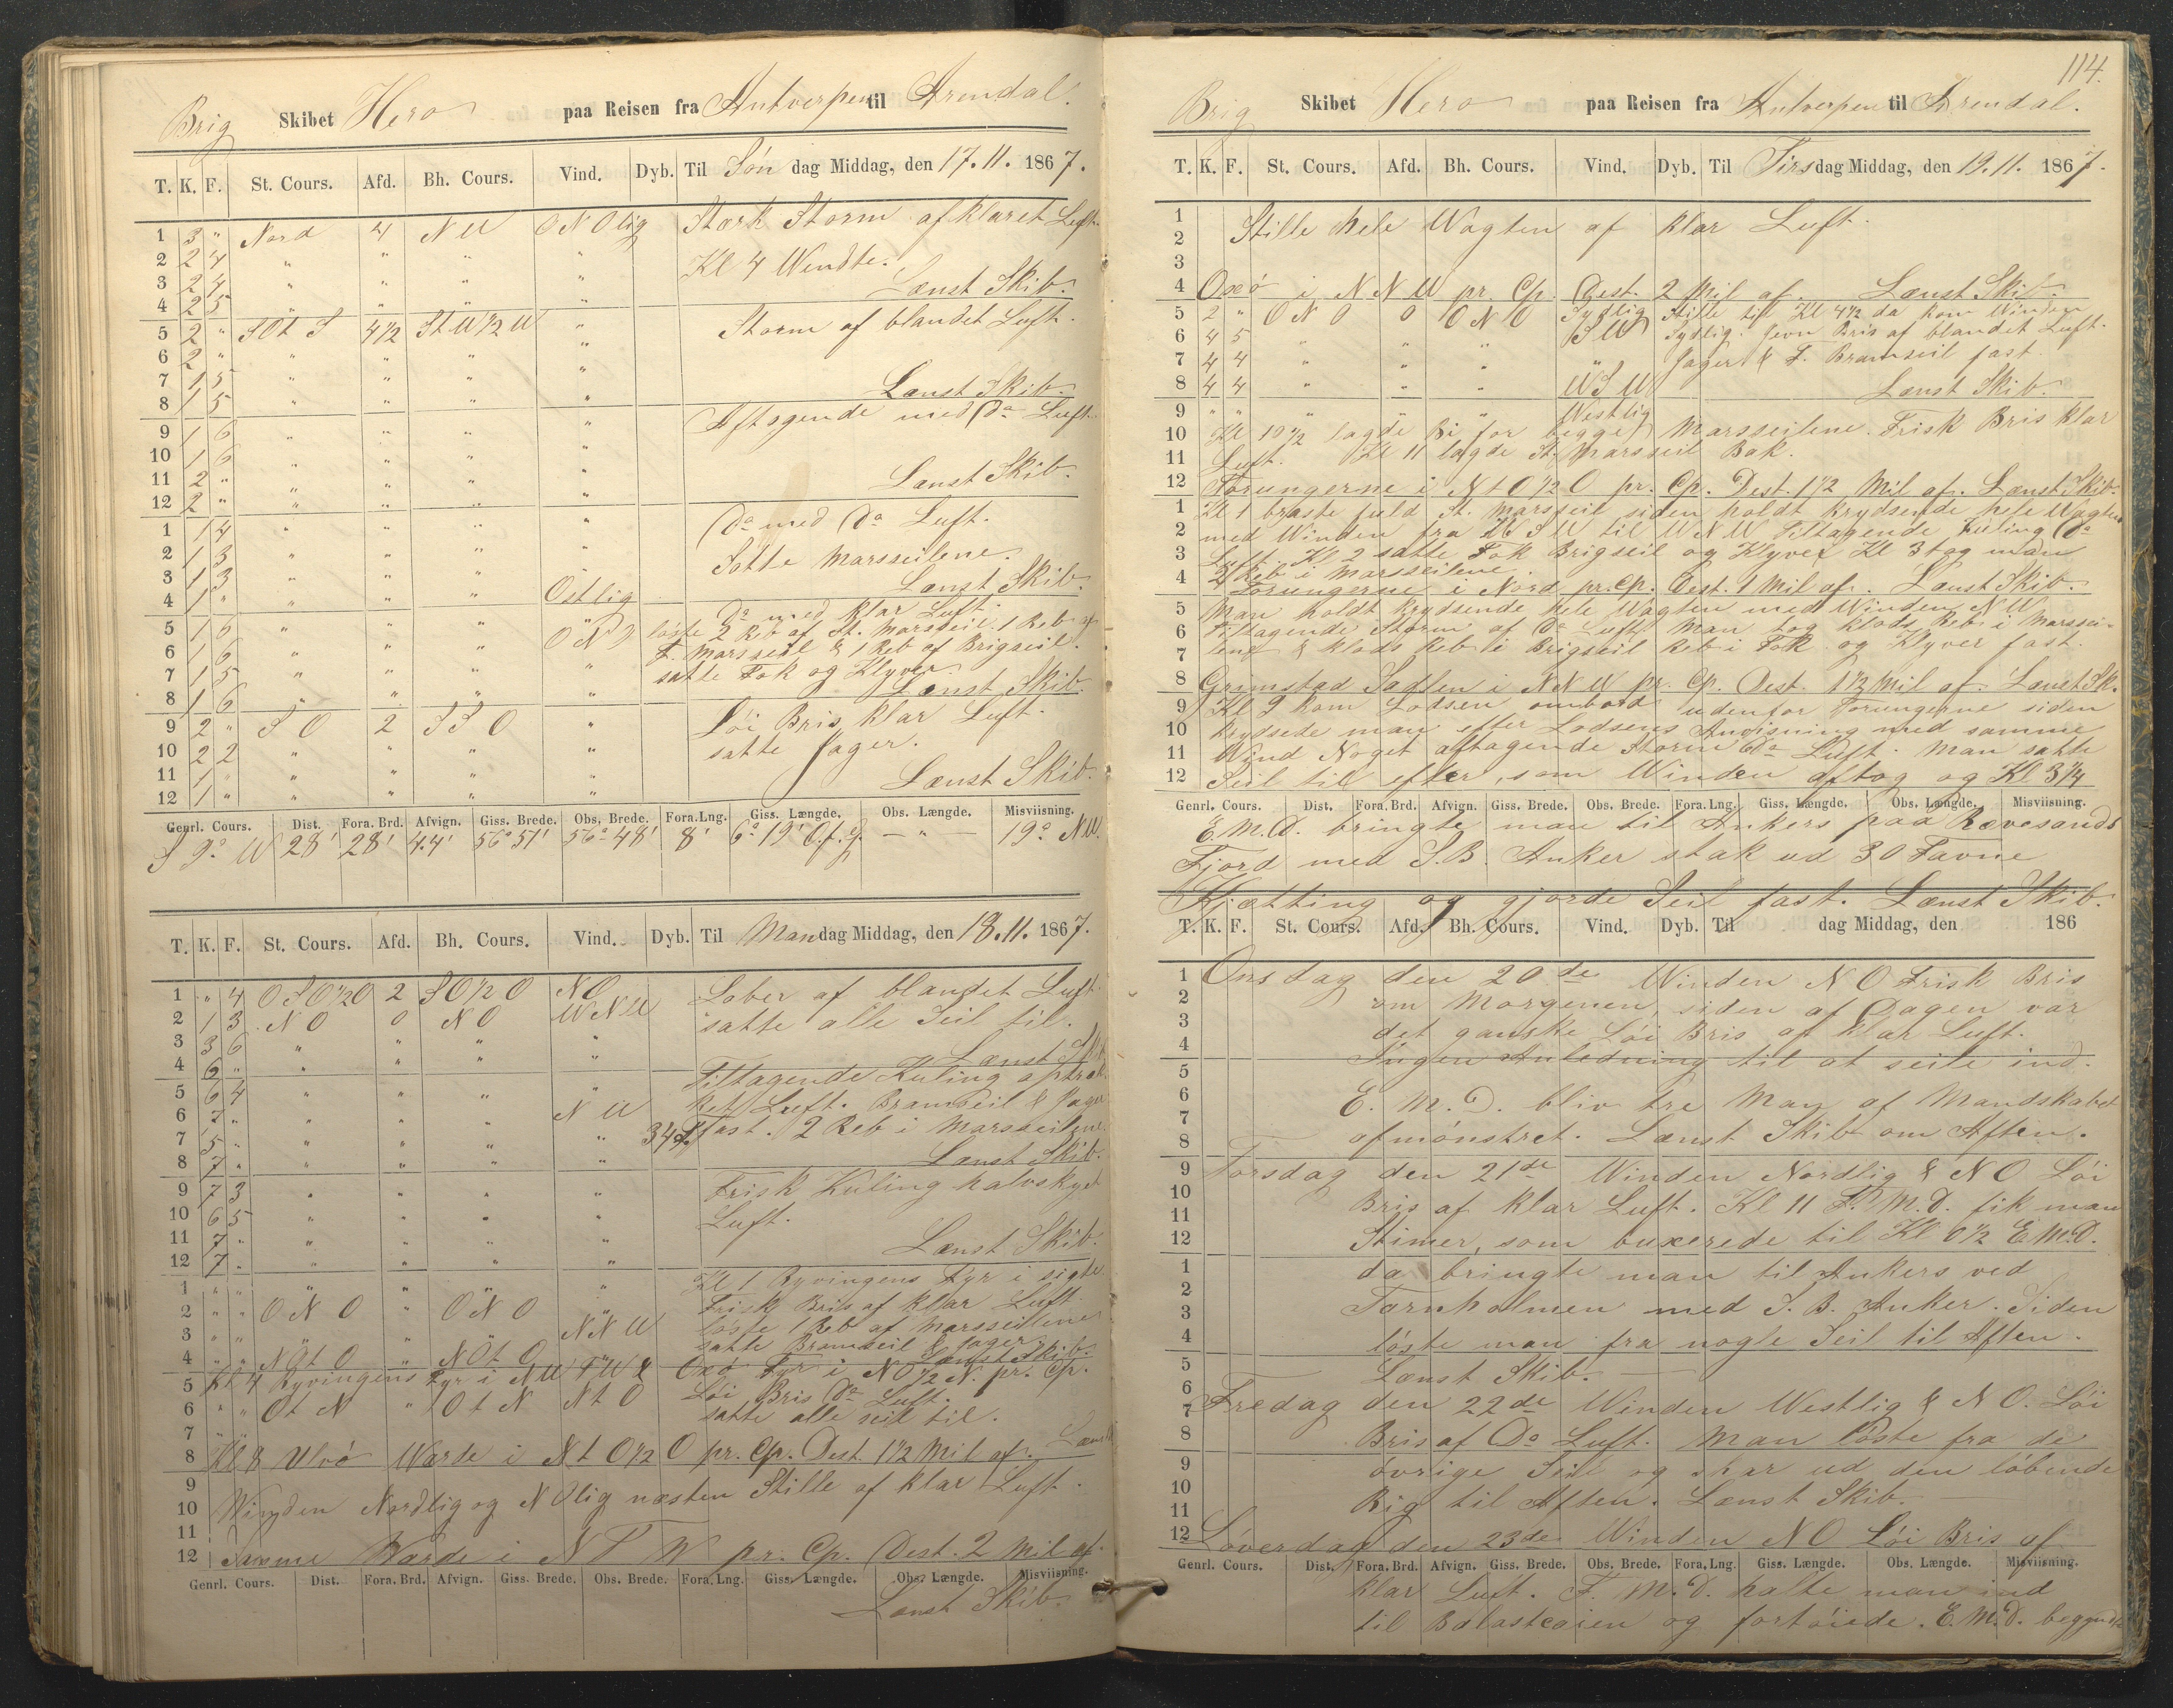 Brig Skibet Hero paa Reisen fra Antverpen til Arendal.
T. K. F. St. Cours. Afd. Bh. Cours. Vind. Dyb. Til Søn dag Middag, den 17.11. 1867.
1 3 " Nord 4 NW ONOlig Stærk Storm af klaret Luft.
2 2 4 " " " " Kl 4 Wendte.
3 2 4 " " " " Lænst Skib.
4 2 5 " " " "
5 2 " SOt S 4 1/2 StW 1/2 W " Storm af blandet Luft.
6 2 " " " " "
7 1 5 " " " " Lænst Skib.
8 1 5 " " " "
9 1 6 " " " " Aftagende med Do Luft.
10 1 6 " " " "
11 2 " " " " " Lænst Skib.
12 2 " " " " "
1 1 4 " " " " Do med Do Luft.
2 1 3 " " " " Satte Marsseilene.
3 1 3 " " " " Lænst Skib.
4 1 " " " " Ostlig
5 1 6 " " " " Do med klar Luft.
6 1 6 " " " ONO løste 2 Reb af St. Marsseil, 1 Reb af
7 1 5 " " " " F. Marsseil & 1 Reb af Brigseil.
8 1 6 " " " " satte Fok og Klyver. Lænst Skib.
9 2 " SO 2 SSO " Løi Bris klar Luft.
10 2 2 " " " " satte Jager.
11 1 " " " " "
12 1 " " " " " Lænst Skib.
Genrl. Cours. Dist. Fora. Brd. Afvign. Giss. Brede. Obs. Brede. Fora. Lng. Giss. Længde. Obs. Længde. Misviisning.
S 9° W 28' 28' 4.4' 56° 51' 56° 48' 8' 6° 19' O.f.g. — " — 19° NW.
T. K. F. St. Cours. Afd. Bh. Cours. Vind. Dyb. Til Mandag Middag, den 18.11. 1867.
1 " 4 OSO 1/2 O 2 SO 1/2 O NO Laber af blandet Luft.
2 1 3 NO 0 NO WNW satte alle Seil til.
3 3 6 " " " "
4 6 " " " " " Lænst Skib
5 6 4 " " " " Tiltagende Kuling aptrak-
6 7 " " " " NW ket Luft. Bramseil & Jager
7 5 " " " " " 34 fast. 2 Reb i Marsseilene.
8 7 " " " " " Lænst Skib.
9 7 3 " " " " Frisk Kuling halvskyet
10 6 5 " " " " Luft.
11 7 " " " " "
12 7 " " " " " Lænst Skib.
1 " " " " " " Kl 1 Ryvingens Fyr i sigte
2 " " ONO " ONO " Frisk Bris af klar Luft.
3 " " " " " NNW løste 1 Reb af Marsseilene
4 " " NOt O " NOt O satte Bramseil & Jager. Lænst Skib.
5 Kl 4 Ryvingens Fyr i NWTW & Oxø Fyr i NO 1/2 N. pr. Cp.
6 " " Ot N " Ot N Nt O Løi Bris Do Luft.
7 " " satte alle seil til.
8 Kl 8 Ulvø Warde i Nt O 1/2 O pr. Cp. Dest. 1 1/2 Mil af. Lænst
9
10 Winden Nordlig og NOlig næsten Stille af klar Luft.
11
12 Samme Warde i NTW pr. Cp. Dest. 2 Mil af.
Genrl. Cours. Dist. Fora. Brd. Afvign. Giss. Brede. Obs. Brede. Fora. Lng. Giss. Længde. Obs. Længde. Misviisning.
Lænst Skib.
114.
Brig Skibet Hero paa Reisen fra Antverpen til Arendal.
T. K. F. St. Cours. Afd. Bh. Cours. Vind. Dyb. Til Tirsdag Middag, den 19.11. 1867.
1
2 Stille hele Wagten af klar Luft.
3
4 Oxø i NNW pr. Cp. Dest. 2 Mil af. Lænst Skib.
5 2 " ONO 0 ONO Sydlig Stille til Kl 4 1/2 da kom Winden
6 4 5 " " " SW Sydlig. Jevn Bris af blandet Luft.
7 4 4 " " " " Jager & F. Bramseil fast.
8 4 4 " " " WSW Lænst Skib.
9 " " " " " Westlig
10 Kl 10 1/2 lagde Bi for begge Marsseilene. Frisk Bris klar
11 Luft. Kl 11 lagde St. Marsseil Bak.
12 Torungerne i Nt O 1/2 O pr. Cp. Dest. 1 1/2 Mil af. Lænst Skib.
1 Kl 1 braste fuld St. Marsseil siden holdt krydsende hele Wagten
2 med Winden fra WSW til WNW Tiltagende Kuling Do
3 Luft. Kl 2 satte Fok Brigseil og Klyver Kl 3 tog man
4 2 Reb i Marsseilene.
Torungerne i Nord pr. Cp. Dest. 1 Mil af. Lænst Skib.
5 Man holdt krydsende hele Wagten med Winden NW
6 Tiltagende Storm af Do Luft. Man tog klods Reb i Marssei-
7 lene & klods Reb i Brigseil Reb i Fok og Klyver fast.
8 Grimstad Sadlen i NNW pr. Cp. Dest. 1 1/2 Mil af. Lænst Sk.
9 Kl 9 kom Lodsen ombord udenfor Torungerne siden
10 krydsede man efter Lodsens Anvisning med samme
11 Wind Noget aftagende Storm Do Luft. Man satte
12 Seil til efter, som Winden aftog og Kl 3 1/4
Genrl. Cours. Dist. Fora. Brd. Afvign. Giss. Brede. Obs. Brede. Fora. Lng. Giss. Længde. Obs. Længde. Misviisning.
E.M.D. bringte man til Ankers paa Rævesands
Fjord med S.B. Anker stak ud 30 Favne
Kjætting og gjorde Seil fast. Lænst Skib.
T. K. F. St. Cours. Afd. Bh. Cours. Vind. Dyb. Til dag Middag, den 186
1 Onsdag den 20de Winden NO Frisk Bris
2 om Morgenen, siden af Dagen var
3 det ganske Løi Bris af klar Luft.
4 Ingen Anledning til at seile ind.
5
6 E.M.D. bliv tre Man af Mandskabet
7
8 afmønstret. Lænst Skib om Aften.
9 Torsdag den 21de Winden Nordlig & NO Løi
10 Bris af klar Luft. Kl 11 F.M.D. fik man
11
12 Stimer, som buxerede til Kl 0 1/2 E.M.D.
1 da bringte man til Ankers ved
2
3 Tornholmen med S.B. Anker. Siden
4 løste man fra nogle Seil til Aften.
5 Lænst Skib. —
6
7 Fredag den 22de Winden Westlig & NO. Løi
8 Bris af Do Luft. Man løste fra de
9 øvrige Seil og skar ud den løbende
10
11 Rig til Aften. Lænst Skib. —
12 Løverdag den 23de Winden NO Løi Bris af
Genrl. Cours. Dist. Fora. Brd. Afvign. Giss. Brede. Obs. Brede. Fora. Lng. Giss. Længde. Obs. Længde. Misviisning.
klar Luft. F.M.D. halte man ind
til Balastcaien og fortøiede. E.M.D. begyndte